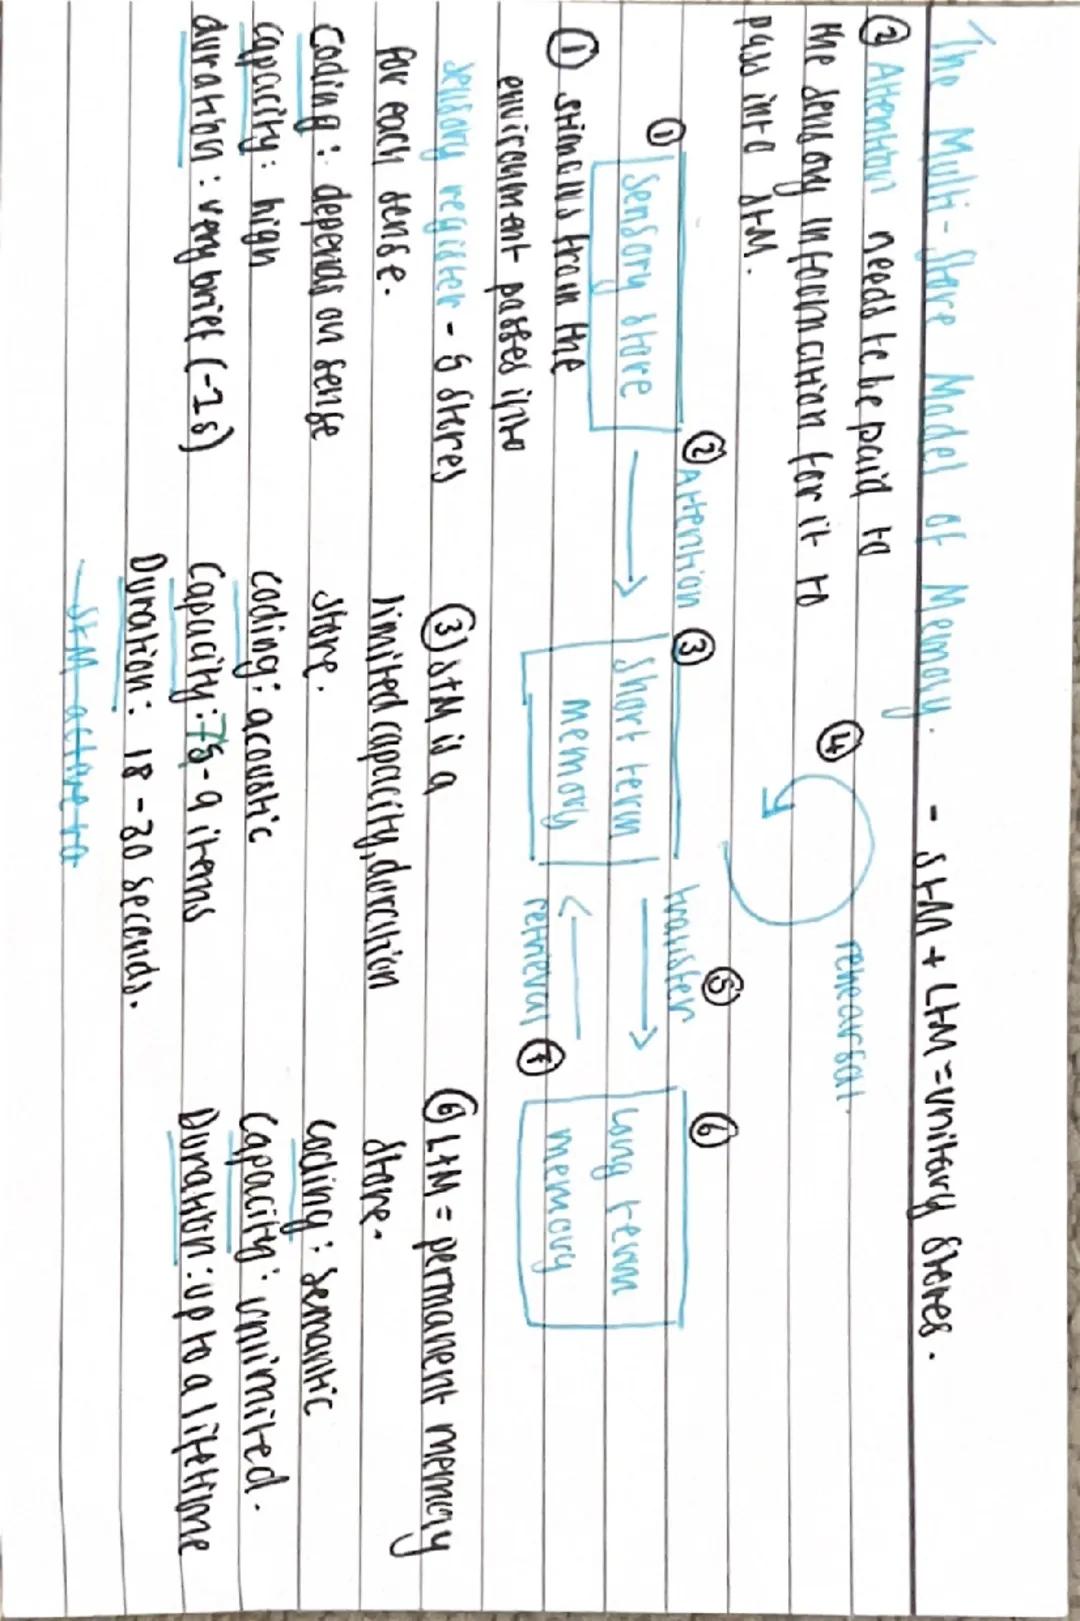 The Multi-Store Model of Memory. - STM + LTM = unitary stores.
② Attention needs to be paid to
the sensory information for it to
pass into STM.
④ rehearsal.
① ② Attention ③ transfer ⑤ ⑥
Sensory store
Short term
memory
Long term
memory
retrieval ⑦
① stimulus from the
environment passes into
sensory register - 5 stores
for each sense.
Coding: depends on sense
capacity: high
duration: very brief (-1s)
③ STM is a
limited capacity, duration
store.
coding: acoustic
Capacity: 75-9 items
Duration: 18-30 seconds.
⑥ LTM = permanent memory
store.
coding: semantic
Capacity: unlimited.
Duration: up to a lifetime